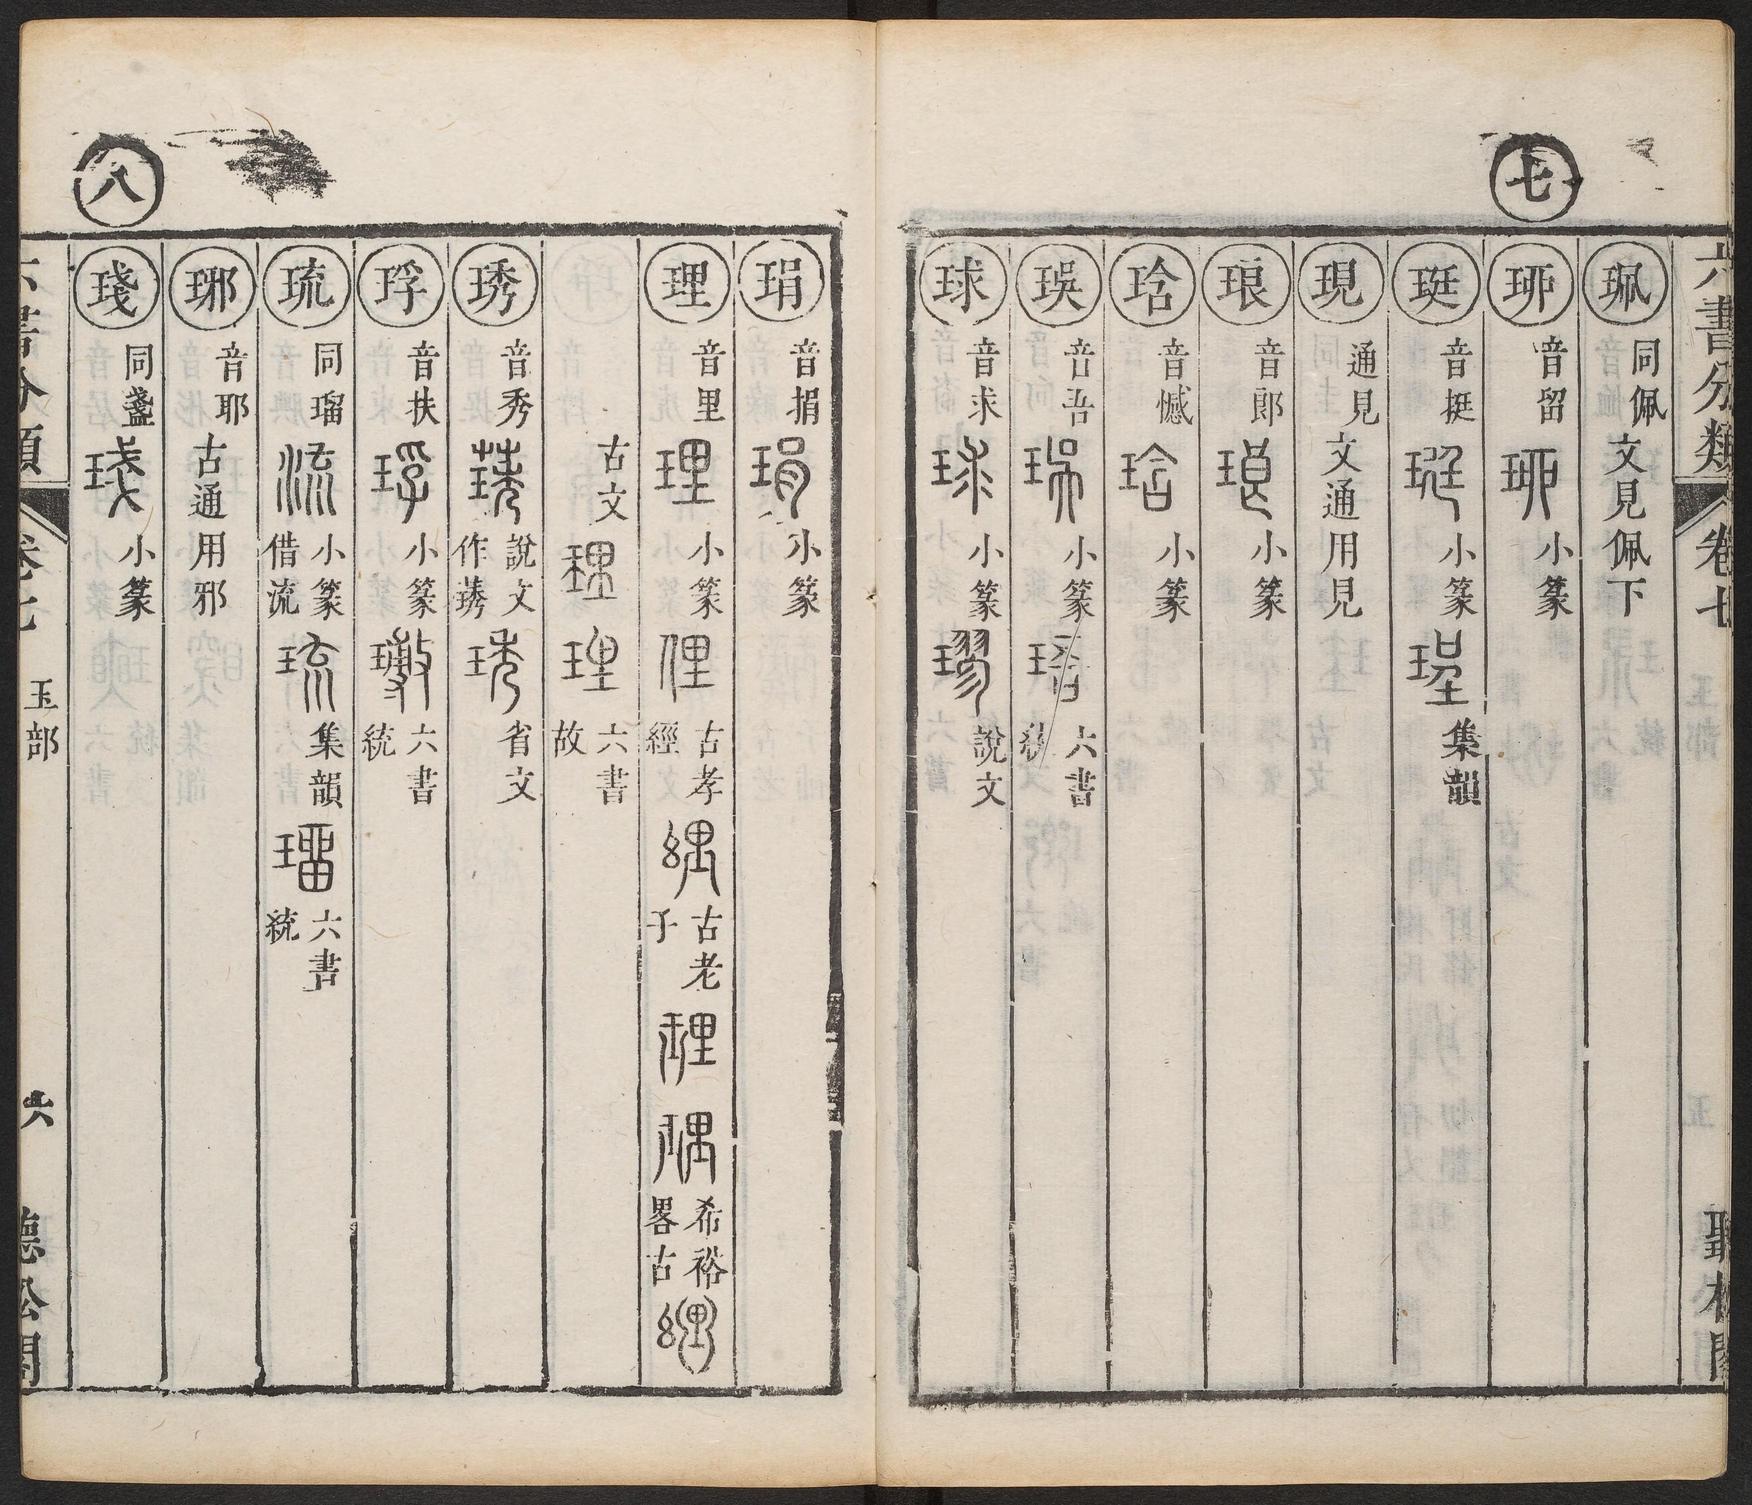 七
六書分類 卷七 玉部
珮 同佩 文見佩下
珋 音留 小篆
珽 音挺 小篆 集韻
現 通見 文通用見
琅 音郎 小篆
琀 音憾 小篆
珸 音吾 小篆 六書統
球 音求 小篆 說文
八
琄 音捐 小篆
理 音里 小篆 古孝經 古老子 希裕畧古
古文 六書故
琇 音秀 說文作璓 省文
琈 音扶 小篆 六書統
琉 同瑠 小篆借流 集韻 六書統
琊 音耶 古通用邪
琖 同盞 小篆
六書分類 卷七 玉部 六